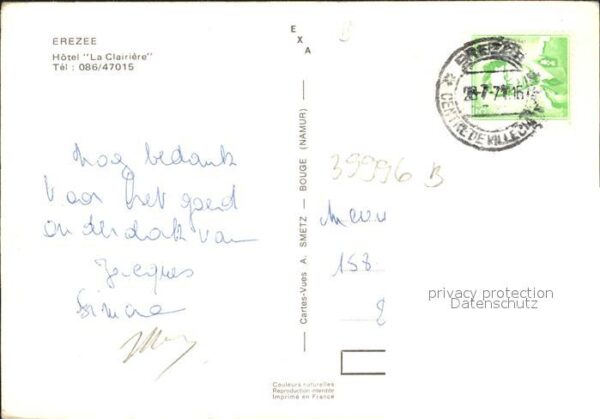 EREZEE
Hôtel "La Clairière"
Tél : 086/47015
EXA
B
EREZEE
28-7-71 16
CENTRE DE VILLEGIATURE
nog bedankt
voor het goed
onderdak van
Jacques
Simone
39996 B
158
8
Cartes-Vues A. SMETZ — BOUGE (NAMUR)
privacy protection
Datenschutz
Couleurs naturelles
Reproduction interdite
Imprimé en France